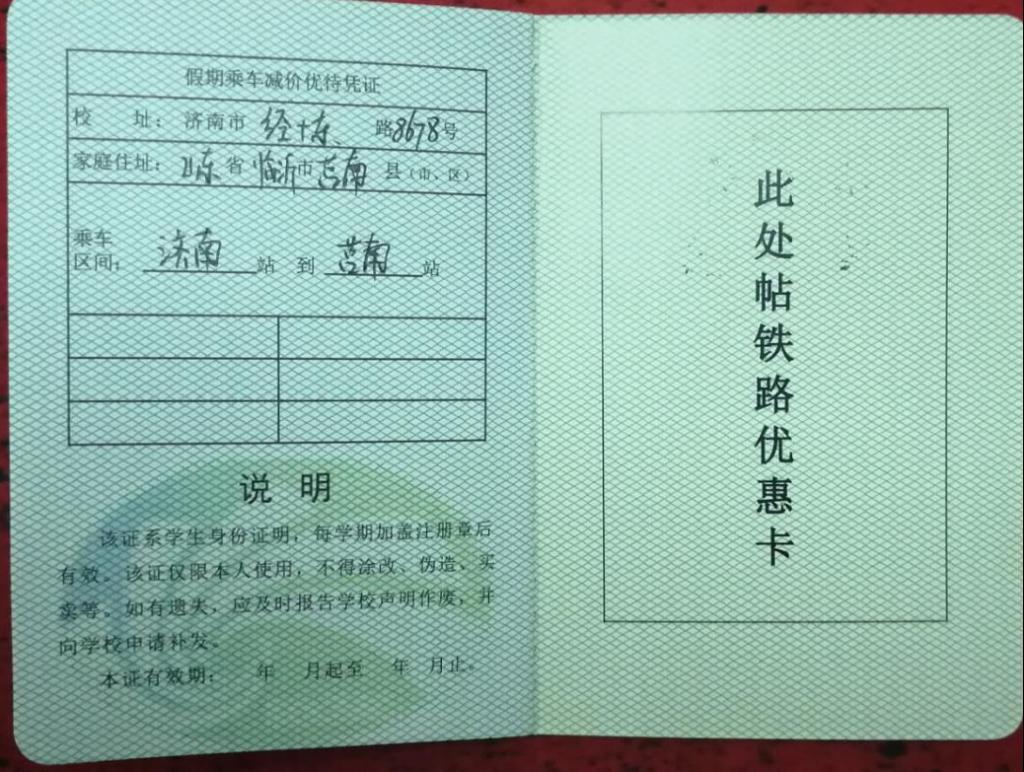 假期乘车减价优待凭证
校 址：济南市 经十东 路8678号
家庭住址：山东省临沂市莒南县（市、区）
乘车
区间： 济南 站 到 莒南 站
说 明
该证系学生身份证明，每学期加盖注册章后
有效。该证仅限本人使用，不得涂改、伪造、买
卖等。如有遗失，应及时报告学校声明作废，并
向学校申请补发。
本证有效期： 年 月起至 年 月止。
此处帖铁路优惠卡